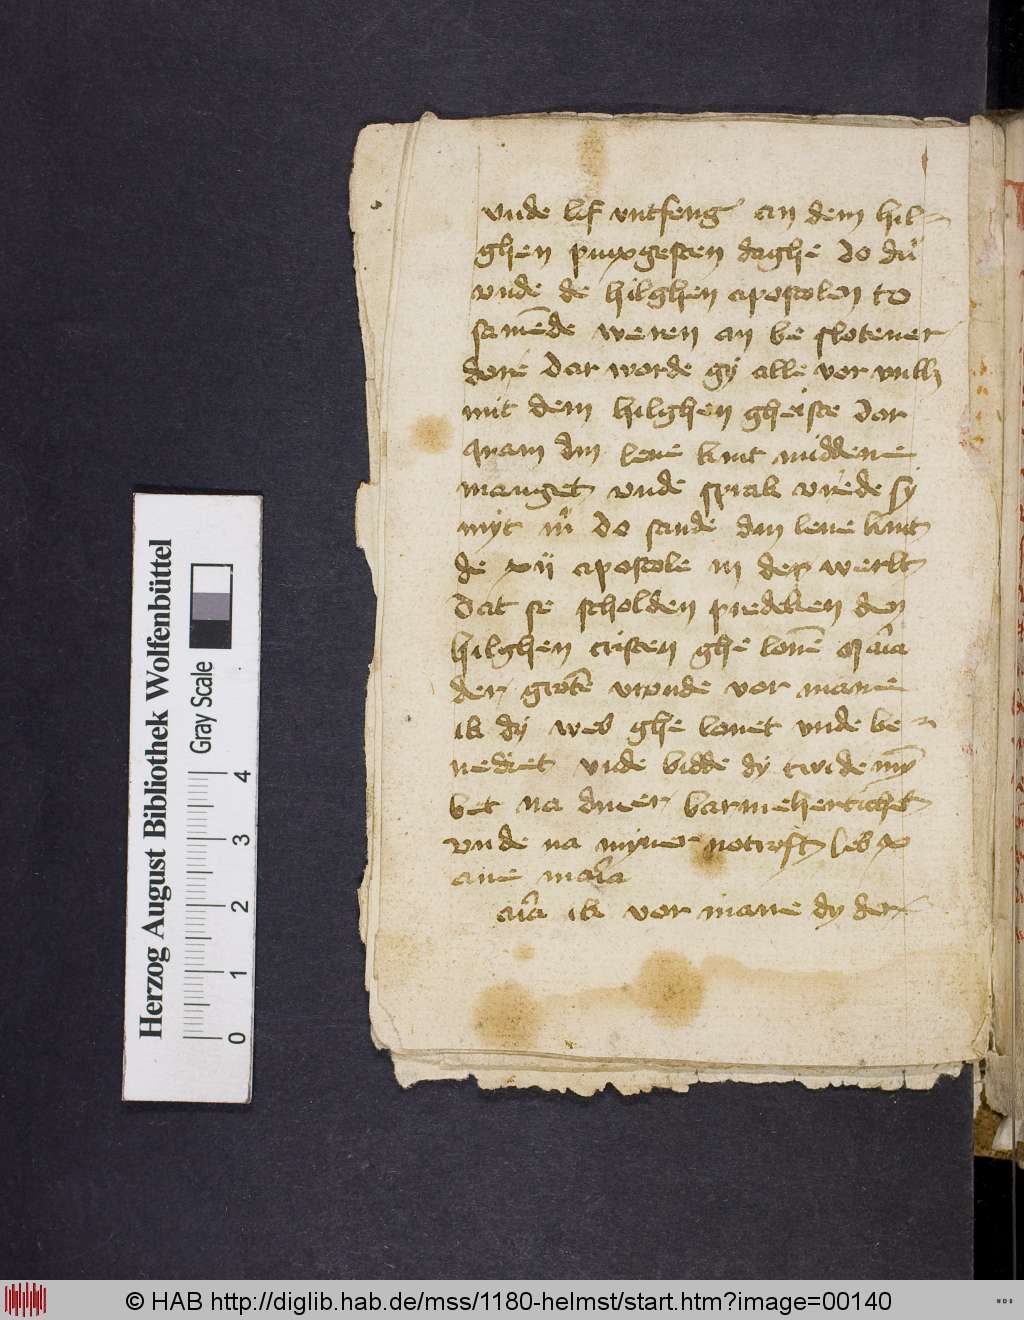 vnde lif vntfeng an dem hil-
ghen pinxgesten daghe do du
vnde de hilghen apostolen to
samēde weren an be slotener
dore dar worde gy alle vor vult
mit dem hilghen gheiste dar
quam din leue kint middene
manget vnde sprak vrede sy
myt iu do sande din leue kint
de xii apostole in der werlt
dat se scholden predeken den
hilghen cristen ghe louē maria
der grotē vronde vor mane
ik dy wes ghe louet vnde be-
nediet vnde bidde dy twide my
bet na diner barmeherticheit
vnde na myner notroft les x
aue maria
aria ik vor mane dy der
Herzog August Bibliothek Wolfenbüttel
Gray Scale
0 1 2 3 4
© HAB http://diglib.hab.de/mss/1180-helmst/start.htm?image=00140